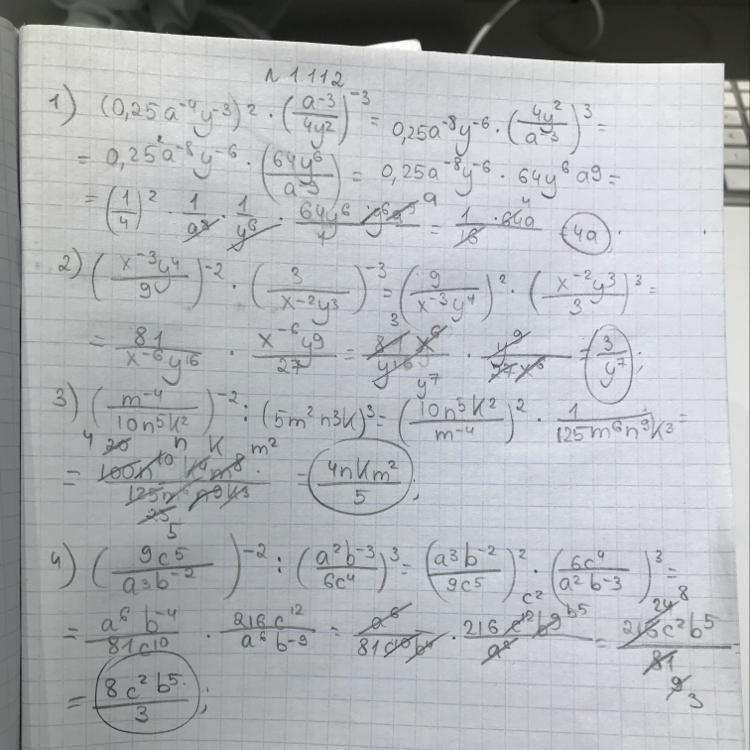 N 1112
1) (0,25a⁻⁴y⁻³)² · (a⁻³/4y²)⁻³ = 0,25a⁻⁸y⁻⁶ · (4y²/a⁻³)³ =
= 0,25²a⁻⁸y⁻⁶ · (64y⁶/a⁻⁹) = 0,25a⁻⁸y⁻⁶ · 64y⁶a9 =
= (1/4)² · 1/a⁸ · 1/y⁶ · 64y⁶a⁹/1 a = 1 · 64a/16 4 = 4a.
2) (x⁻³y⁴/9)⁻² · (3/x⁻²y³)⁻³ = (9/x⁻³y⁴)² · (x⁻²y³/3)³ =
= 81/x⁻⁶y¹⁶ · x⁻⁶y⁹/27 = 3 81x⁶/y¹⁶ y⁷ · y⁹/27x⁶ = 3/y⁷;
3) (m⁻⁴/10n⁵k²)⁻² : (5m²n³k)³ = (10n⁵k²/m⁻⁴)² · 1/125m⁶n⁹k³ =
4 20 n k m²
= 100n¹⁰k⁴m⁸/125m⁶n⁹k³ = 4nkm²/5;
25
5
4) (9c⁵/a³b⁻²)⁻² : (a²b⁻³/6c⁴)³ = (a³b⁻²/9c⁵)² · (6c⁴/a²b⁻³)³ =
= a⁶b⁻⁴/81c¹⁰ · 216c¹²/a⁶b⁻⁹ = a⁶/81c¹⁰b⁴ · 216c¹²b⁹/a⁶ c² b⁵ = 216c²b⁵/81 24 8 9 3
= 8c²b⁵/3;